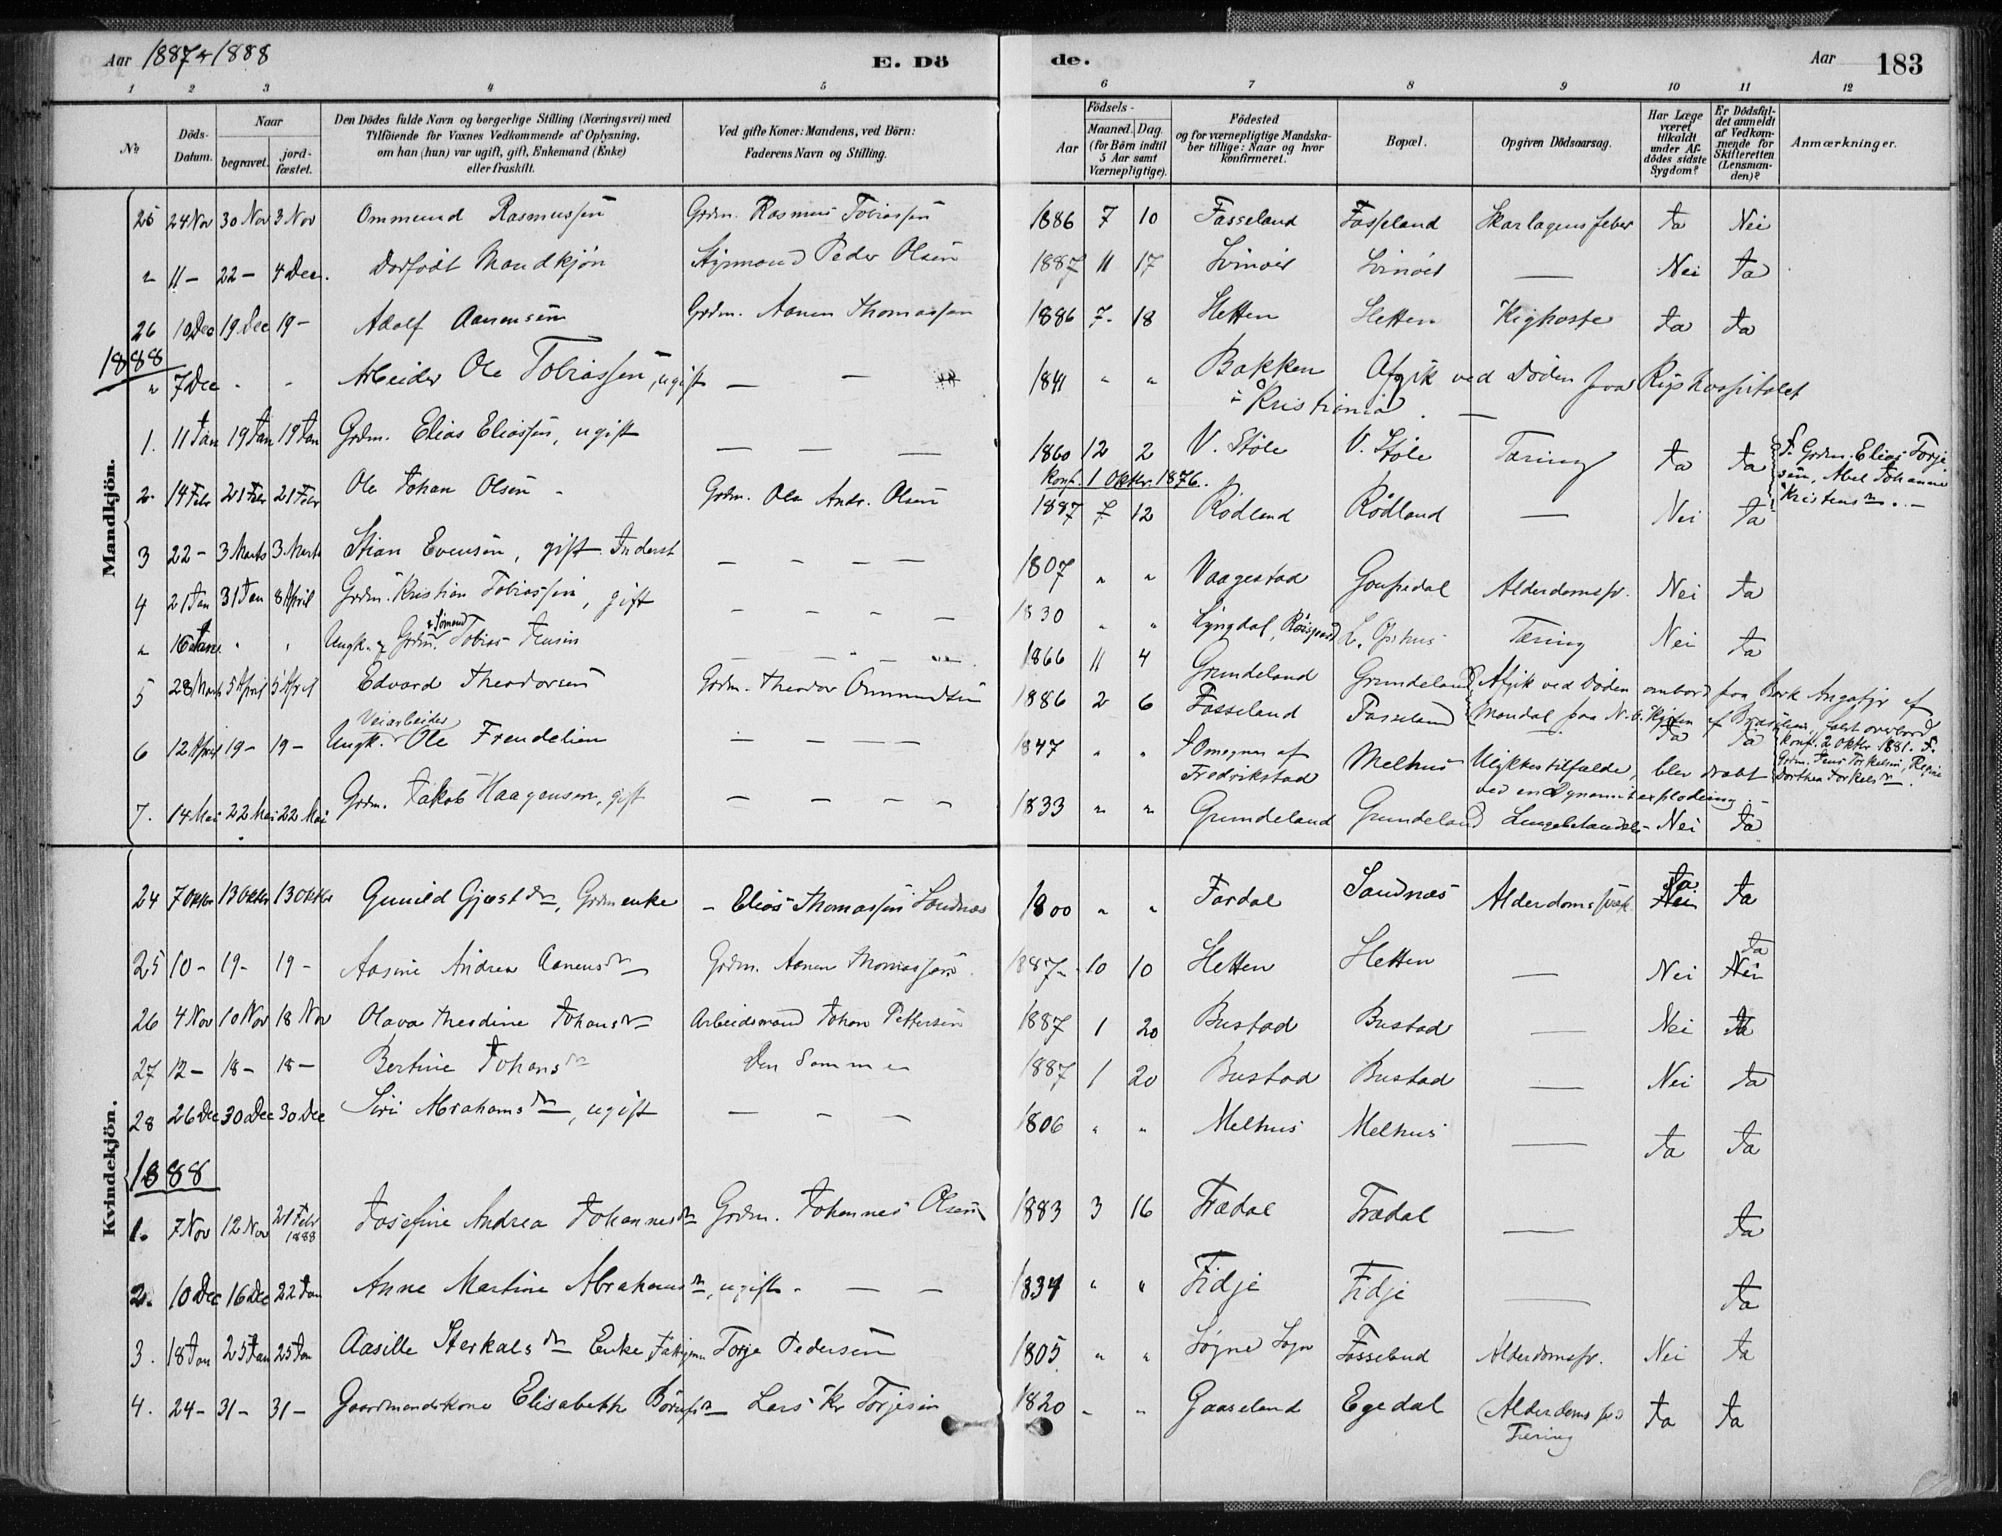 Aar 1887 & 1888 E. Dö de. Aar 183
1 2 3 4 5 6 7 8 9 10 11 12
No Döds-Datum. Naar begravet. jord-fæstet. Den Dödes fulde Navn og borgerlige Stilling (Næringsvei) med Tilföiende for Voxnes Vedkommende af Oplysning, om han (hun) var ugift, gift, Enkemand (Enke) eller fraskilt. Ved gifte Koner: Mandens, ved Börn: Faderens Navn og Stilling. Födsels- Aar Maaned. Dag (for Börn indtil 5 Aar samt Værnepligtige). Födested og for værnepligtige Mandskaber tillige: Naar og hvor konfirmeret. Bopæl. Opgiven Dödsaarsag. Har Læge været tilkaldt under Afdödes sidste Sygdom? Er Dödsfaldet anmeldt af Vedkommende for Skifteretten (Lensmanden)? Anmærkninger.
Mandkjön.
25 24 Nov 30 Nov 3 Nov Ommund Rasmussen Grdm. Rasmus Tobiassen 1886 7 10 Fasseland Fasseland Skarlagensfeber Ja Nei
" 11 - 22 - 4 Dec. Dødfødt Mandkjøn Peder Olsen 1887 11 17 — Nei Ja
26 10 Dec 19 Dec 19 - Adolf Aanensen Grdm. Aanen Thomassen 1886 7 18 Hetten Hetten Kighoste Ja Ja
1888
" 7 Dec " " Arbeider Ole Tobiassen, ugift — — 1841 " " Bakken Afgik ved Døden paa Rigshospitalet
i Kristiania. —
1. 11 Jan 19 Jan 19 Jan Grdm. Elias Eliassen, ugift — — — 1860 12 2 V. Støle V. Støle Tæring Ja Ja F. Grdm. Elias Torje
sen, Abel Johanne
Konf. 1 Oktbr. 1876.
Kristensdr. —
2. 14 Febr 21 Febr 21 Febr Ole Johan Olsen - Grdm. Ole Andr. Olsen 1887 7 12 Rødland Rødland — Nei Ja
3 22 - 3 Marts 3 Marts Stian Evensen, gift Inderst — — — — 1807 " " Vaagestad Alderdomssv. Nei Ja
4 21 Jan 31 Jan 8 April Grdm. Kristian Tobiassen, gift — — — — 1830 " " Lyngdal, Tæring Nei Ja
" 16 Jan. " " Ungk. & Grdm. & Sømand Tobias Jensen — — — 1866 11 4 Grundeland Grundeland Afgik ved Døden ombord paa Bark af
5 28 Marts 5 April 5 April Edvard Theodorsen Grdm. Theodor Ommundsen 1886 2 6 Fasseland Fasseland Mandal paa N.O. Kysten af Brasilien, faldt overbord
Ja Ja Konf. 2 Oktbr. 1881. F.
Grdm. Jens Torkelsen,
Dorthea Torkelsdr.
6 12 April 19 - 19 - Ungk. Veiarbeider Ole Frendelien — — — 1847 " " Omegnen af Fredrikstad Melhus Ulykkestilfælde, blev dræbt
ved en Dynamitexplodering. —
7. 14 Mai 22 Mai 22 Mai Grdm. Jakob Haagensen, gift — — — — 1833 " " Grundeland Grundeland Nei Ja
Kvindekjön.
24 7 Oktbr 13 Oktbr 13 Oktbr Gunild Gjestdr, Grdmenke - Elias Thomassen Sandnæs 1800 " " Fardal Sandnæs Alderdomssvæk. Nei Ja Ja
25 10 - 19 - 19 - Aasine Andrea Aanensdr Grdm. Aanen Thomassen. 1887 10 10 Hetten Hetten — Nei Nei Ja
26 4 Nov 10 Nov 18 Nov Olava Thesdine Johansdr Arbeidsmand Johan Pettersen 1887 1 20 Bustad Bustad — Nei Ja
27 12 - 18 - 18 - Bertine Johansdr Den Samme 1887 1 20 Bustad Bustad — Nei Ja
28 26 Dec 30 Dec 30 Dec Siri Abrahamsdr, ugift — — — 1806 " " Melhus Melhus — Ja Ja
1888
1. 7 Nov 12 Nov 21 Febr 1888 Josefine Andrea Johannesdr Grdm. Johannes Olsen 1883 3 16 Trædal Trædal — Ja
2. 10 Dec 16 Dec 22 Jan Anne Martine Abrahamsdr, ugift. — — 1834 " " Fidje Fidje — Ja
3. 18 Jan 25 Jan 25 Jan Aasille Sterkalsdr Enke, Torje Pedersen 1805 " " Søgne Sogn Fasseland Alderdomssv. Nei Ja
4. 24 - 31 - 31 - Gaardmandskone Elisabeth Lars Kr Torjesen 1820 " " Gaaseland Egedal Alderdomssv.
Tæring Ja Ja